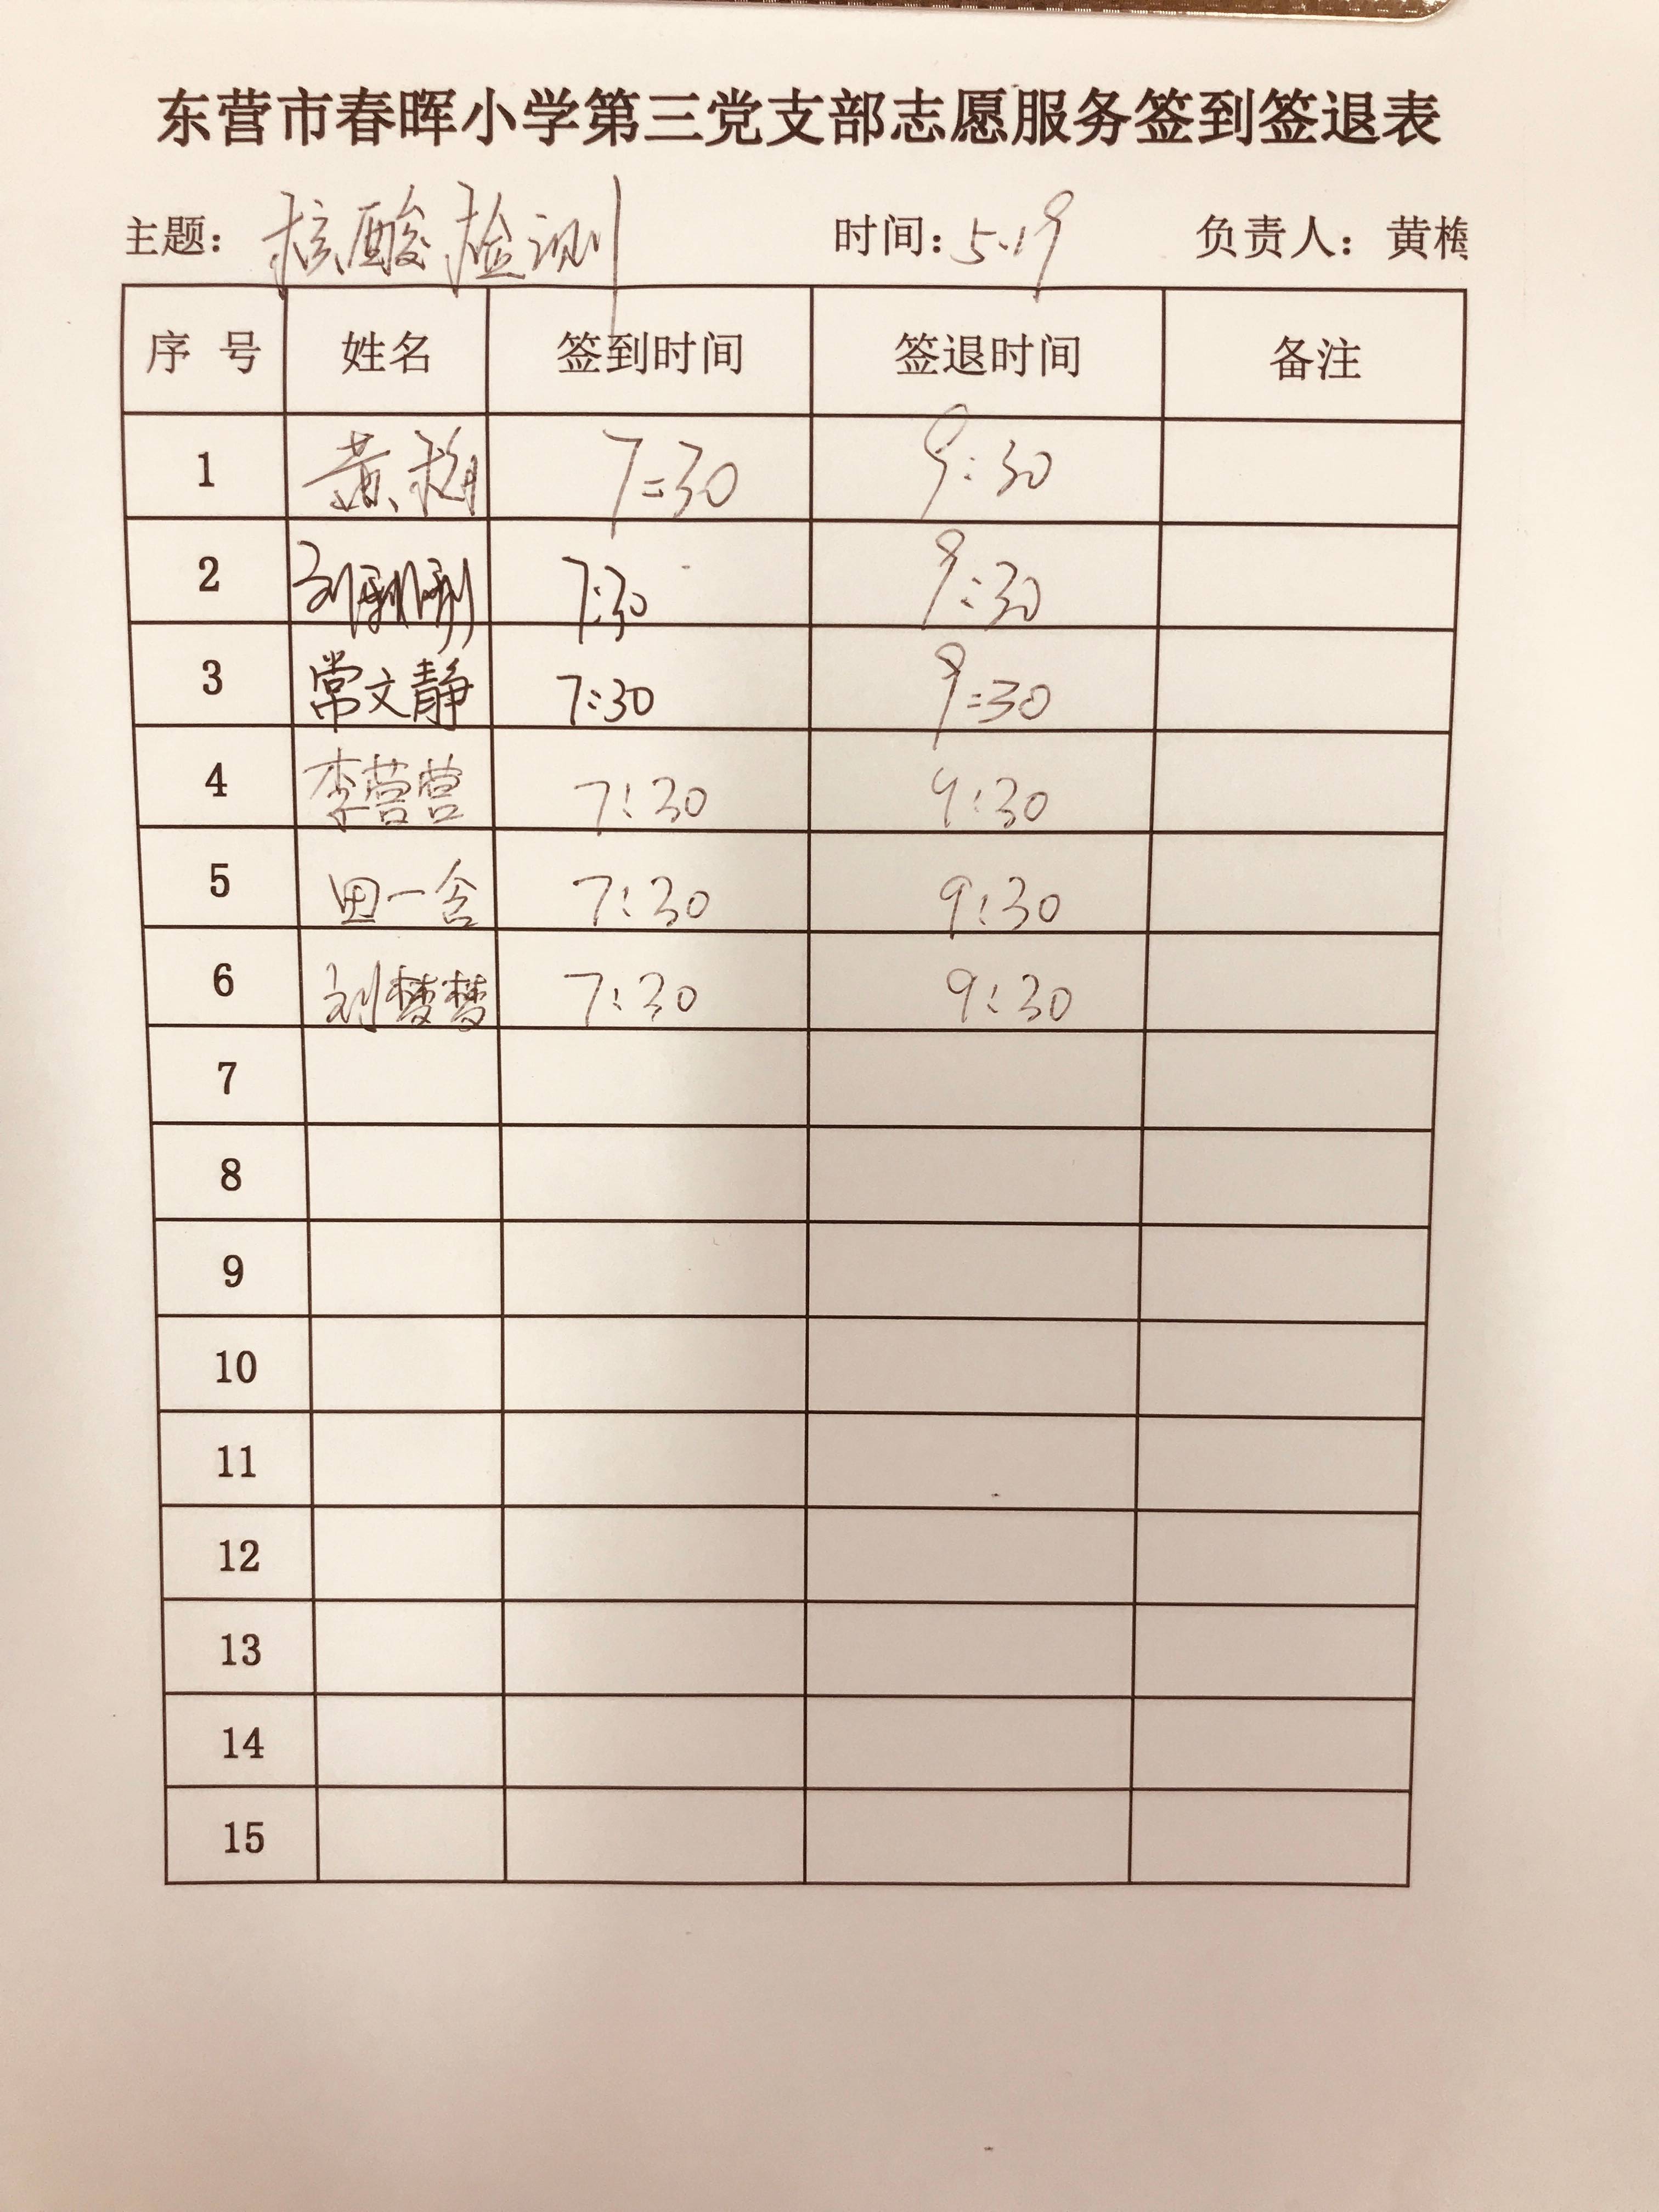 东营市春晖小学第三党支部志愿服务签到签退表
主题：核酸检测 时间：5.19 负责人：黄梅
序 号 姓名 签到时间 签退时间 备注
1 黄梅 7:30 9:30
2 刘 7:30 9:30
3 常文静 7:30 9:30
4 李营营 7:30 9:30
5 田一含 7:30 9:30
6 刘梦梦 7:30 9:30
7
8
9
10
11
12
13
14
15